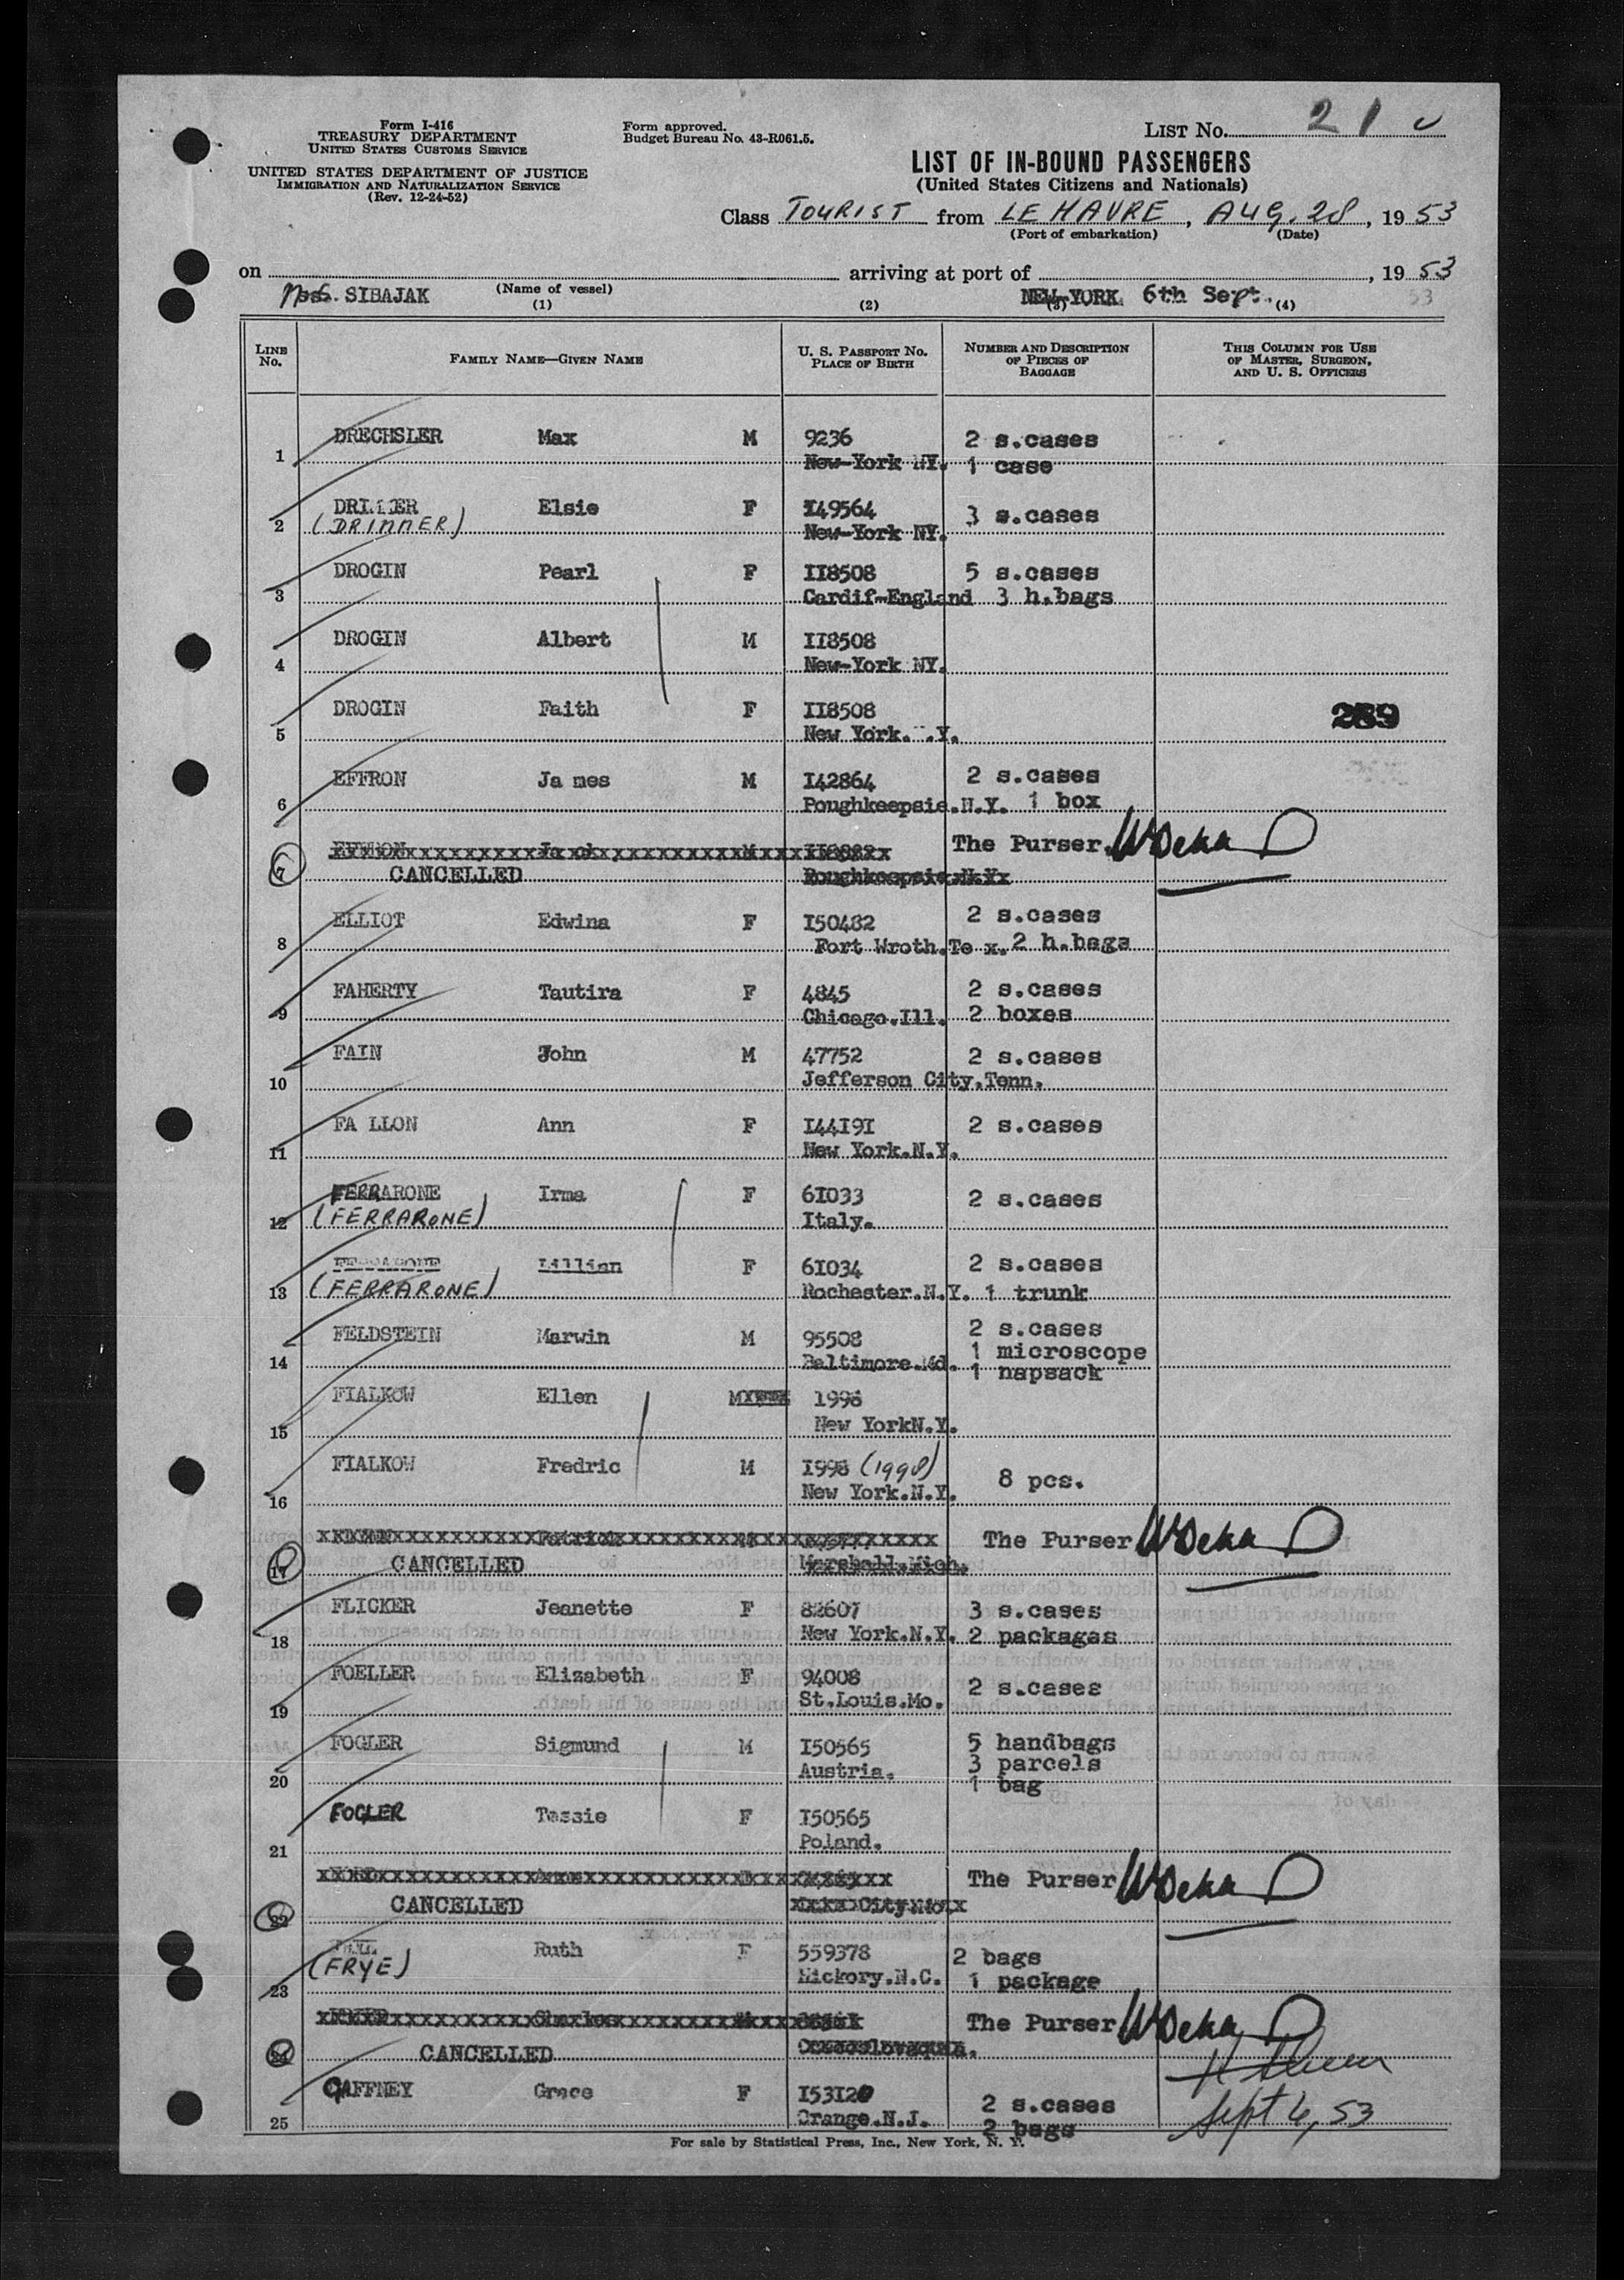 Form I-416
TREASURY DEPARTMENT
UNITED STATES CUSTOMS SERVICE
UNITED STATES DEPARTMENT OF JUSTICE
IMMIGRATION AND NATURALIZATION SERVICE
(Rev. 12-24-52)
Form approved.
Budget Bureau No. 43-R061.5.
LIST NO. 21
LIST OF IN-BOUND PASSENGERS
(United States Citizens and Nationals)
Class TOURIST from LE HAVRE, AUG. 28, 1953
(Port of embarkation) (Date)
on arriving at port of , 1953
SIBAJAK (Name of vessel) NEW-YORK 6th Sept. 53
(1) (2) (3) (4)
LINE NO.
FAMILY NAME—GIVEN NAME
U. S. PASSPORT NO. PLACE OF BIRTH
NUMBER AND DESCRIPTION OF PIECES OF BAGGAGE
THIS COLUMN FOR USE OF MASTER, SURGEON, AND U. S. OFFICERS
DRECHSLER Max M 9236 2 s.cases
1 New-York NY. 1 case
Elsie F I49564 3 s.cases
2 (DRIMMER) New-York NY.
DROGIN Pearl F II8508 5 s.cases
3 Cardif-England 3 h.bags
DROGIN Albert M II8508
4 New-York NY.
DROGIN Faith F II8508
5 New York. .Y.
289
EFFRON Ja mes M I42864 2 s.cases
6 Poughkeepsie.N.Y. 1 box
EFFRON M The Purser
7 CANCELLED Poughkeepsie.N.Y
ELLIOT Edwina F I50482 2 s.cases
8 Fort Wroth.Te x. 2 h.bags
FAHERTY Tautira F 4845 2 s.cases
9 Chicago.Ill. 2 boxes
FAIN John M 47752 2 s.cases
10 Jefferson City.Tenn.
FA LLON Ann F I44I9I 2 s.cases
11 New York.N.Y.
FERRARONE Irma F 6I033 2 s.cases
12 (FERRARONE) Italy.
FERRARONE Lillian F 6I034 2 s.cases
13 (FERRARONE) Rochester.N.Y. 1 trunk
FELDSTEIN Marwin M 95508 2 s.cases
1 microscope
14 Baltimore.Md. 1 napsack
FIALKOW Ellen 1998
15 New YorkN.Y.
FIALKOW Fredric M I998 (1998) 8 pcs.
16 New York.N.Y.
The Purser
17 CANCELLED Marshall.Mich.
FLICKER Jeanette F 82607 3 s.cases
18 New York.N.Y. 2 packages
FOELLER Elizabeth F 94008 2 s.cases
19 St.Louis.Mo.
FOGLER Sigmund M I50565 5 handbags
3 parcels
20 Austria. 1 bag
FOGLER Tessie F I50565
21 Poland.
The Purser
22 CANCELLED City
Ruth F 559378 2 bags
23 (FRYE) Hickory.N.C. 1 package
Charles The Purser
24 CANCELLED
GAFFNEY Grace F I53I20 2 s.cases
25 Orange.N.J. 2 bags
Sept 6, 53
For sale by Statistical Press, Inc., New York, N. Y.